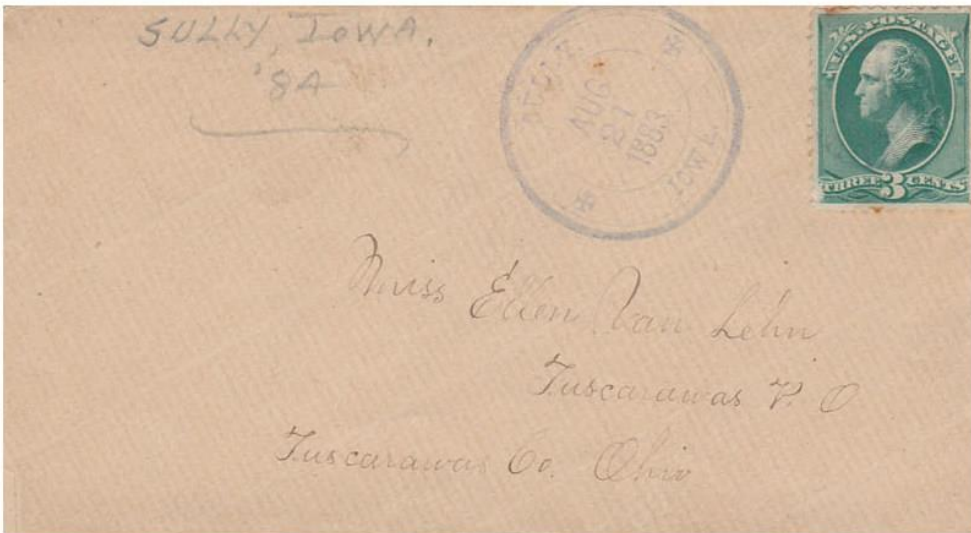 SULLY, IOWA.
'84
AUG
21
1883
IOWA.
U.S. POSTAGE
THREE 3 CENTS
Miss Ellen Van Lehn
Tuscarawas P. O
Tuscarawas Co. Ohio